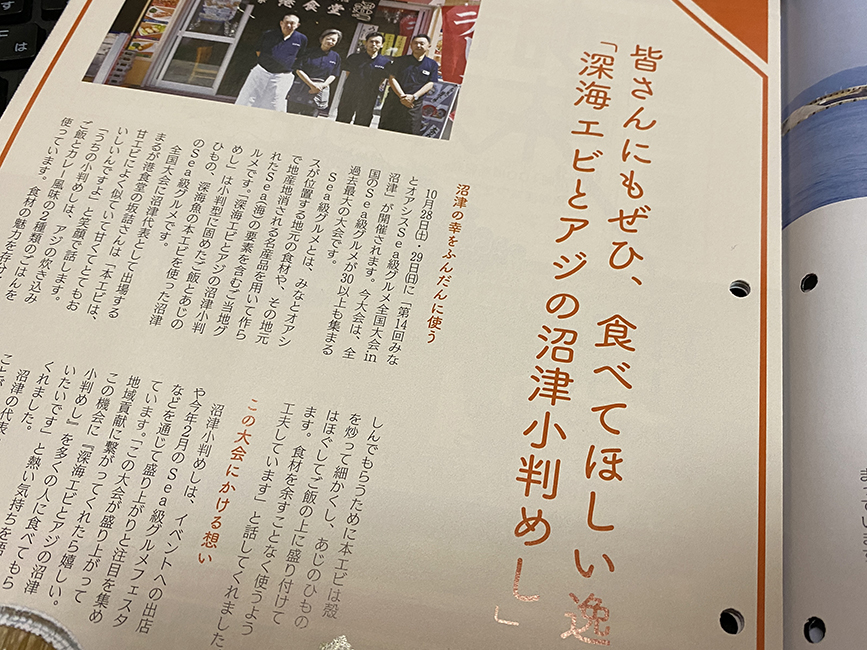 港食堂
皆さんにもぜひ、食べてほしい逸
「深海エビとアジの沼津小判めし」
沼津の幸をふんだんに使う
10月28日㈯、29日㈰に「第14回みな
とオアシスSea級グルメ全国大会in
沼津」が開催されます。今大会は、全
国のSea級グルメが30以上も集まる
過去最大の大会です。
Sea級グルメとは、みなとオアシ
スが位置する地元の食材や、その地元
で地産地消される名産品を用いて作ら
れたSea(海)の要素を含むご当地グ
ルメです。「深海エビとアジの沼津小判
めし」は小判型に固めたご飯とあじの
ひもの、深海魚の本エビを使った沼津
のSea級グルメです。
全国大会に沼津代表として出場する
まるが港食堂の坂詰さんは「本エビは、
甘エビによく似ていて甘くてとてもお
いしいんですよ」と笑顔で話します。
「うちの小判めしは、アジの炊き込み
ご飯とカレー風味の2種類のごはんを
使っています。食材の魅力を存分
しんでもらうために本エビは殻
を炒って細かくし、あじのひもの
はほぐしてご飯の上に盛り付けて
ます。食材を余すことなく使うよう
工夫しています」と話してくれました
この大会にかける想い
沼津小判めしは、イベントへの出店
や今年2月のSea級グルメフェスタ
などを通じて盛り上がりと注目を集め
ています。「この大会が盛り上がって
地域貢献に繋がってくれたら嬉しい。
この機会に『深海エビとアジの沼津
小判めし』を多くの人に食べてもら
いたいです」と熱い気持ちを語
くれました。
沼津の代表
ことが